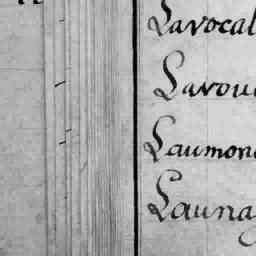 Lavocal
Lavou
Laumon
Launay